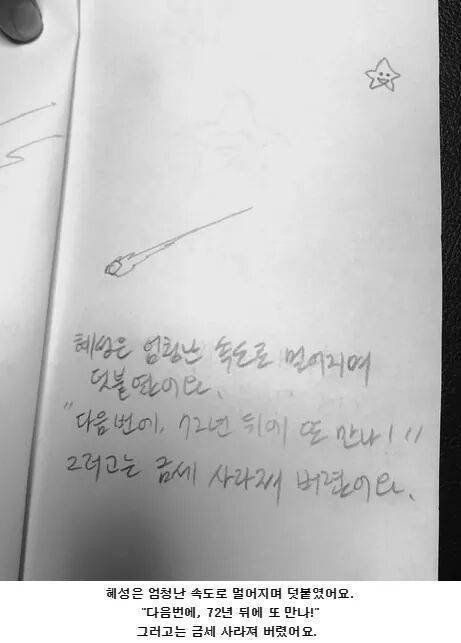 혜성은 엄청난 속도로 멀어지며
덧붙였어요.
"다음번에, 72년 뒤에 또 만나!"
그러고는 금세 사라져 버렸어요.
혜성은 엄청난 속도로 멀어지며 덧붙였어요.
"다음번에, 72년 뒤에 또 만나!"
그러고는 금세 사라져 버렸어요.